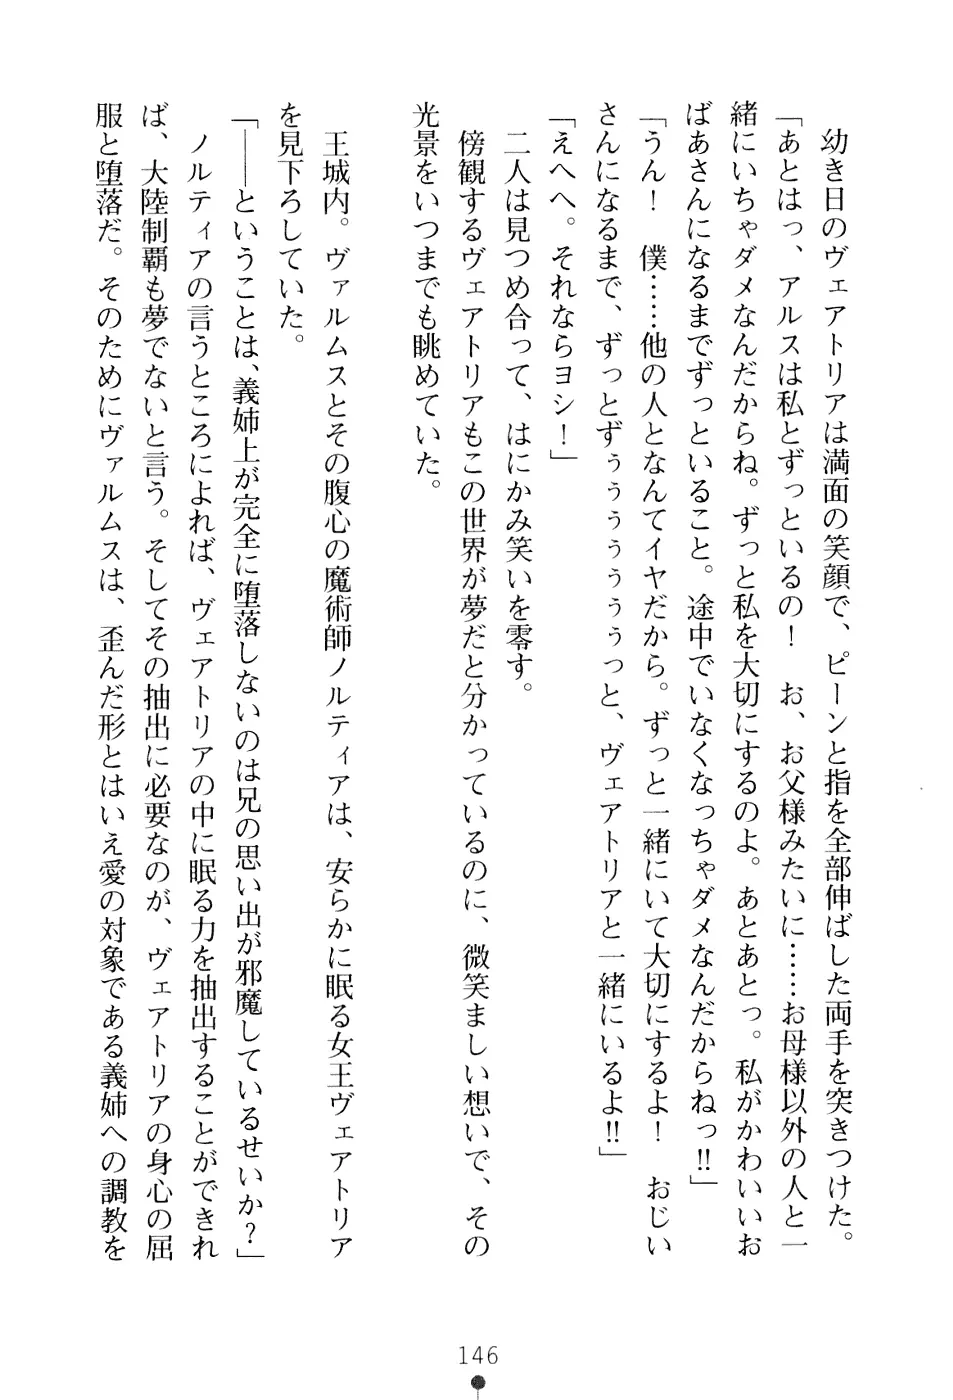 幼き日のヴェアトリアは満面の笑顔で、ピーンと指を全部伸ばした両手を突きつけた。
「あとはっ、アルスは私とずっといるの！　お、お父様みたいに……お母様以外の人と一
緒にいちゃダメなんだからね。ずっと私を大切にするのよ。あとあとっ。私がかわいいお
ばあさんになるまでずっといること。途中でいなくなっちゃダメなんだからねっ!!」
「うん！　僕……他の人となんてイヤだから。ずっと一緒にいて大切にするよ！　おじい
さんになるまで、ずっとずぅぅぅぅぅっと、ヴェアトリアと一緒にいるよ!!」
「えへへ。それならヨシ！」
　二人は見つめ合って、はにかみ笑いを零す。
　傍観するヴェアトリアもこの世界が夢だと分かっているのに、微笑ましい想いで、その
光景をいつまでも眺めていた。
　王城内。ヴァルムスとその腹心の魔術師ノルティアは、安らかに眠る女王ヴェアトリア
を見下ろしていた。
「──ということは、義姉上が完全に堕落しないのは兄の思い出が邪魔しているせいか？」
　ノルティアの言うところによれば、ヴェアトリアの中に眠る力を抽出することができれ
ば、大陸制覇も夢でないと言う。そしてその抽出に必要なのが、ヴェアトリアの身心の屈
服と堕落だ。そのためにヴァルムスは、歪んだ形とはいえ愛の対象である義姉への調教を
146